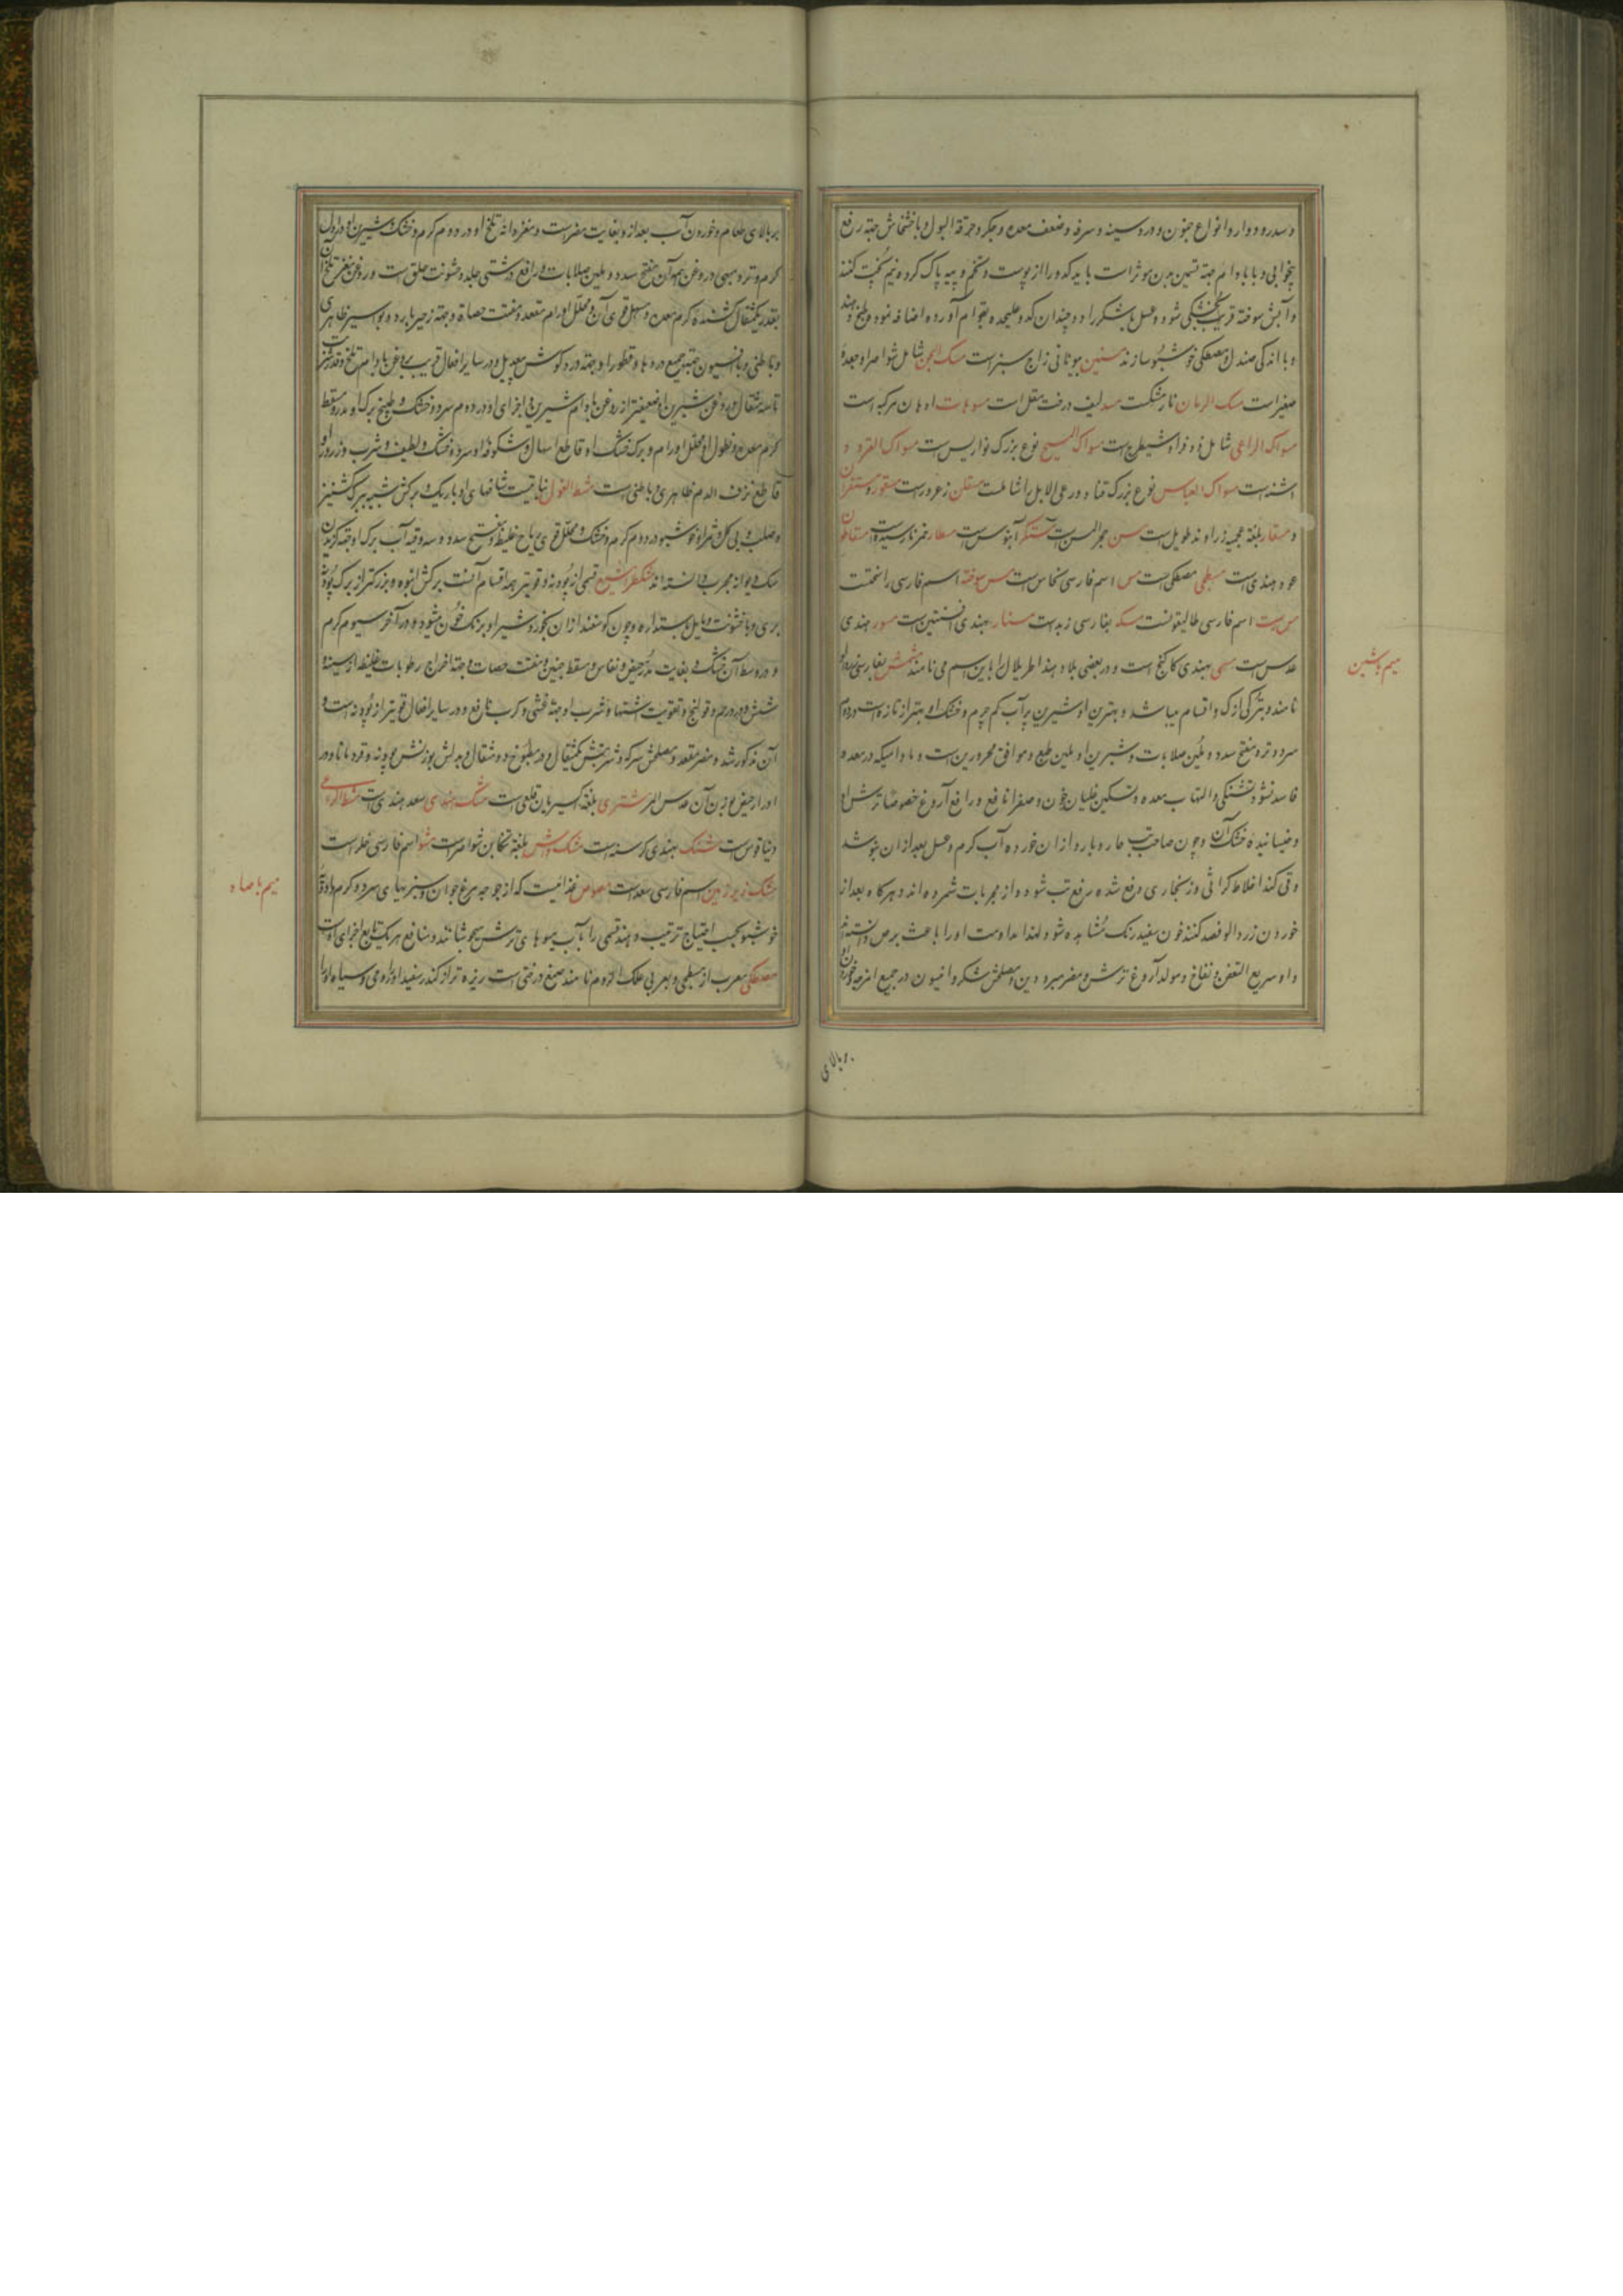 و سدر و دوار و انواع جنون و درد سینه و سرفه و ضعف معده و جگر و حرقة البول و با خشخاش جهة رفع
بیخوابی و با بادام جهة تسمین بدن موثر است باید کدو را از پوست و تخم و پیه پاک کرده نیم پخت کنند
و آبش سوخته قریب بخشکی شود و عسل یا شکر را دو چندان کدو علیحده بقوام آورده اضافه نموده طبخ دهند
و با اندکی صندل و مصطکی خوشبو سازند بیونانی زاج سبز است مسک الجن شامل شواصرا و جعدهٔ
صغیر است مسک الرمان نارمشکست مسد لیف درخت مقل است مسوحات ادهان مرکبه است
مسواک الراعی شامل و شیطرج است مسواک المسیح نوع بزرک است مسواک القرود
اشنه است مسواک العباس نوع بزرک و رعی الابل را شاملست زعرور است
و مسقار بلغة عجمیه زراوند طویل است مسن حجر المسن است آبنوس است مسطار خمر نارسیده است
عود هندی است مسطیخی مصطکی است مس اسم فارسی نحاس است مس سوخته اسم فارسی راسختست
مس رست اسم فارسی طالیقونست مسکه بفارسی زبد است مستارو بهندی افسنتین است مسور بهندی
عدس است بهندی کاکنج است و در بعضی بلاد هند اطریلال را باین اسم می نامند مشمش بفارسی زردالو
میم باشین
نامند و بترکی ارک و اقسام میباشد و بهترین او شیرین پر آب کم جرم و خشک او بهتر از تازه است در دوم
سرد و تر و مفتح سدد و ملین صلابات و شیرین او ملین طبع و موافق محرورین است و مادامیکه در معده
فاسد نشود تشنکی و التهاب معده و تسکین غلیان خون و صفرا نافع و رافع آروغ خصوصا ترش او
و خیسانیدهٔ خشک آن و چون صاحب تب حار و بارد از آن خورده آب گرم و عسل بعد از آن بنوشد
و قی کند اخلاط کراثی و زنجاری دفع شده رفع تب شود و از مجربات شمرده اند و هرکاه بعد از
خوردن زردالو فصد کنند خون سفید رنک مشاهده شود لهذا مداومت او را باعث برص دانسته اند
و او سریع التعفن و نفاخ و مولد آروغ ترش و مضر مبرودین و مصلحش شکر و انیسون در جمیع امزجه و خوردن
بر بالای
بر بالای طعام و خوردن آب بعد از او بغایت مضر است و مغز دانهٔ تلخ او در دوم گرم و خشک و شیرین او در اول
گرم و تر و مبهی و روغن همه آن مفتح سدد و ملین صلابات و رافع درشتی جلد و خشونت حلق است و روغن مغز تلخ آن
بقدر یکمثقال کشندهٔ کرم معده و مسهل قوی آن و محلل اورام مقعد و مفتت حصاة و جهة زحیر بارد و بواسیر ظاهری
و باطنی و با افیون جهة جمیع دردها و قطور او جهة درد گوش بیعدیل و در سایر افعال قریب بروغن بادام تلخ و قدر شربت
تا سه مثقال و روغن شیرین او ضعیفتر از روغن بادام شیرین و اجزای او در دوم سرد و خشک و طبیخ برک او مدر و مسقط
کرم معده و نطول او محلل اورام و برک خشک او قاطع اسهال و شکوفهٔ او سرد و خشک و لطیف و شرب و ذرور او
قاطع نزف الدم ظاهری و باطنی است مشط الغول نباتیست شاخهای او باریک و برکش شبیه ببرک کشنیز
و صلب و بی گل و ثمر او خوشبو در دوم گرم و خشک و محلل قوی ریاح غلیظ و مفتح سدد و سه وقیه آب برک او جهة گزیدن
سک دیوانه مجرب دانسته اند مشکطرامشیع قسمی از پودنه و قویتر همه اقسام آنست برکش انبوه و بزرکتر از برک پودنهٔ
بری و با خشونت و مایل باستداره و چون گوسفند از آن بخورد شیر او برنک خون میشود در آخر سیوم گرم
و در وسط آن خشک و بغایت مدر حیض و نفاس و مسقط جنین و مفتت حصات و جهة اخراج رطوبات غلیظ از سینه و
شش و درد رحم و قولنج و تقویت اشتها و شرب او جهة غشی و کرب نافع و در سایر افعال قویتر از پودنه است و
آن مذکور شد و مضر مقعد و مصلحش سرکه و شربتش یکمثقال و در مطبوخ دو مثقال و بدلش بوزنش پودنه و قردمانا و در
ادرار حیض بوزن آن عدس المر مشتری بلغة اکسیریان قلعی است مشک هندی سعد هندی است مشط الراعی
دیناقوس است مشنک بهندی کرسنه است مشک واش بلغة تنکابن شواصرا است مشو اسم فارسی خلر است
مشک زیر زمین اسم فارسی سعد است مصوص غذائیست که از جوجه مرغ جوان و سبزیهای سرد و گرم و ادویهٔ
میم با صاد
خوشبو بحسب احتیاج ترتیب دهند قسمی را با آب میوهای ترش میجوشانند و منافع هر یک تابع اجزای اوست
مصطکی معرب از مسطیخی و بعربی علک الروم نامند صمغ درختی است ریزه تر از کندر سفید او را رومی و سیاه او را